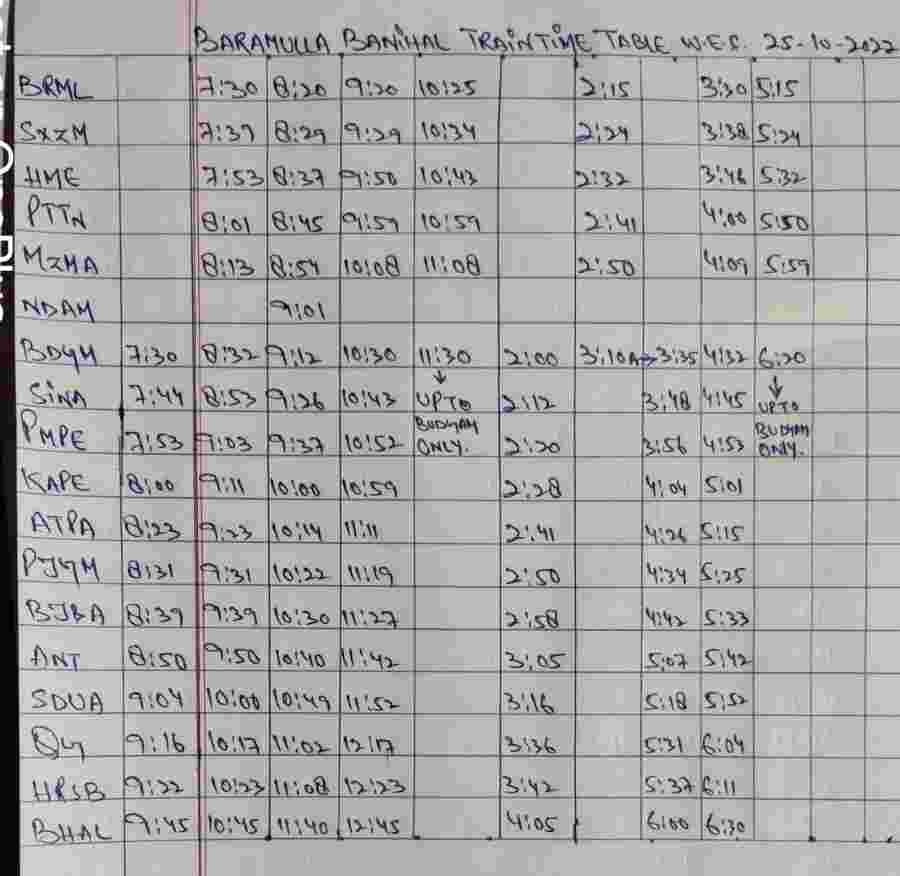 BARAMULLA BANIHAL TRAIN TIME TABLE W.E.F. 25-10-2022
BRML 7:30 8:20 9:20 10:25 2:15 3:30 5:15
SXZM 7:39 8:29 9:29 10:34 2:24 3:38 5:24
HME 7:53 8:37 9:50 10:43 2:32 3:46 5:32
PTTN 8:01 8:45 9:59 10:59 2:41 4:00 5:50
MZMA 8:13 8:54 10:08 11:08 2:50 4:09 5:59
NDAM 9:01
BDGM 7:30 8:32 9:12 10:30 11:30 2:00 3:10A→3:35 4:32 6:20
SINA 7:44 8:53 9:26 10:43 ↓ UPTO 2:12 3:48 4:45 ↓ UPTO
PMPE 7:53 9:03 9:37 10:52 BUDGAM ONLY. 2:20 3:56 4:53 BUDGAM ONLY.
KAPE 8:00 9:11 10:00 10:59 2:28 4:04 5:01
ATPA 8:23 9:23 10:14 11:11 2:41 4:26 5:15
PJGM 8:31 9:31 10:22 11:19 2:50 4:34 5:25
BJBA 8:39 9:39 10:30 11:27 2:58 4:42 5:33
ANT 8:50 9:50 10:40 11:42 3:05 5:07 5:42
SDUA 9:04 10:00 10:49 11:52 3:16 5:18 5:52
QG 9:16 10:17 11:02 12:17 3:36 5:31 6:04
HRSB 9:22 10:23 11:08 12:23 3:42 5:37 6:11
BHAL 9:45 10:45 11:40 12:45 4:05 6:00 6:30